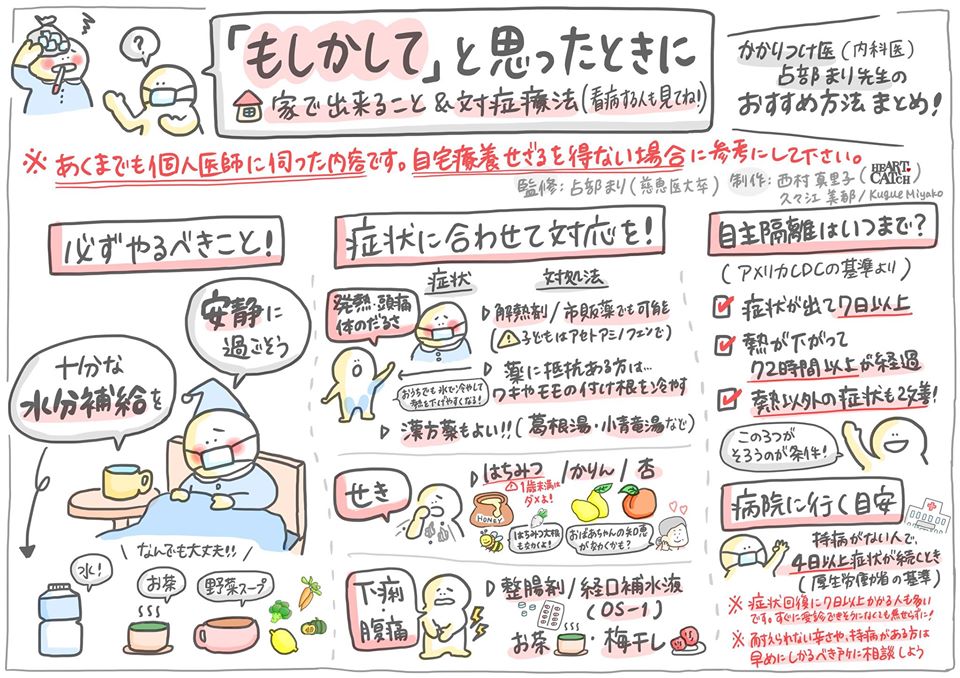 ?
「もしかして」と思ったときに
家で出来ること&対症療法(看病する人も見てね!)
かかりつけ医(内科医)
占部まり先生の
おすすめ方法まとめ!
※あくまでも個人医師に伺った内容です。自宅療養せざるを得ない場合に参考にして下さい。
監修:占部まり(慈恵医大卒) 制作:西村真里子(HEART CATCH)
久々江美都/Kugue Miyako
必ずやるべきこと!
安静に
過ごそう
十分な
水分補給を
なんでも大丈夫!!
水!
お茶
野菜スープ
症状に合わせて対応を!
症状
対処法
発熱・頭痛
体のだるさ
▷解熱剤/市販薬でも可能
(子どもはアセトアミノフェンで)
▷薬に抵抗ある方は…
ワキやモモの付け根を冷やす
おうちでも氷で冷やして
熱を下げやすくなる!
▷漢方薬もよい!!(葛根湯・小青竜湯など)
せき
▷はちみつ/かりん/杏
1歳未満は
ダメよ!
HONEY
はちみつ大根
もなかよく!
おばあちゃんの知恵
が働くかも?
下痢・
腹痛
▷整腸剤/経口補水液
(OS-1)
お茶・梅干し
自主隔離はいつまで?
(アメリカCDCの基準より)
症状が出て7日以上
熱が下がって
72時間以上が経過
熱以外の症状も改善!
この3つが
そろうのが条件!
病院に行く目安
持病がない人で、
4日以上症状が続くとき
(厚生労働省の基準)
※症状回復に7日以上かかる人も多い
です。すぐに受診できそうになくても焦らずに!
※耐えられない辛さや、持病がある方は
早めにしかるべき所に相談しよう